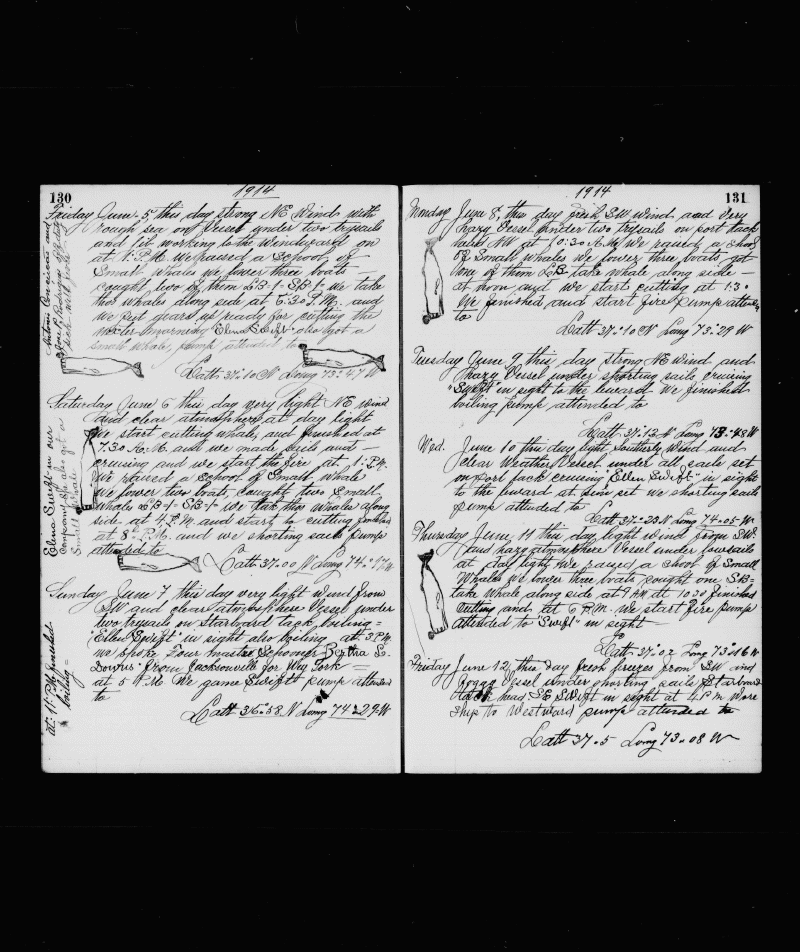 130
1914
Friday June 5, this day strong NE Wind with
rough sea on Vessel under two trysails
and jib working to the Windward on
at 1. P.M. We raised a School of
Small Whales we lower three boats
caught two of them LB-1- SB-1- We take
thos Whales along side at 6:30 P.M. and
we put gears up ready for cutting the
morning Elena Swift also got a
small whale, pump attended to
Latt 37.10 N Long 73.47 W
Saturday June 6 this day very light NE wind
and clear atmosphere at day light
We start cutting whales and finished at
7.30 A.M. and we made sails and
cruising and we start the fire at 1. P.M.
We raised a School of Small Whale
We lower two boats, caught two Small
whales LB-1- SB-1- We take thos Whales along
side at 4 P.M. and start to cutting
at 8. P.M. and we shorting sails pump
attended to
Latt 37.00 N Long 74.
Elena Swift in our
company She also got a
Small Whale
Sunday June 7 this day very light Wind from
SW and clear atmosphere Vessel under
two trysails on Starboard tack, boiling =
"Ellen Swift" in sight also boiling at 3 P.M.
we spoke Four master Schooner Bertha L.
Downs" from Jacksonville for New York
at 5 P.M. We game Swift pump attended
to
Latt 36.58 N Long 74.29 W
at 11 P.M. finished
boiling =
131
1914
Monday June 8, this day fresh SW Wind and Very
hazy Vessel under two trysails on port tack
head NW at 10:30 A.M. We raised a School
of Small whales we lower three boats, got
one of them LB, take whale along side
at noon and we start cutting at 1:30
We finished and start fire pump attended
to
Latt 37.10 N Long 73.29 W
Tuesday June 9, this day strong NE Wind and
hazy Vessel under shorting sails, cruising
"Swift" in sight to the leward We finished
boiling pump attended to
Latt 37.12 N Long 73.48 W
Wed. June 10 this day light Southerly Wind and
clear Weather Vessel under all sails set
on port tack cruising "Ellen Swift" in sight
to the leward at Sun set we shorting sail
pump attended to
Latt 37.23 N Long 74.05 W
Thursday June 11 this day light wind from SW.
and hazy atmosphere Vessel under lowsails
at day light We raised a School of Small
Whales we lower three boats caught one SB=
take whale along side at 9 AM at 10 30 finished
Cutting and at 6 P.M. We start fire pump
attended to "Swift" in sight
Latt 37.02 Long 73.16 W
Friday June 12, this Day fresh breezes from SW and
foggy Vessel under shorting sails Starboard
tack head SE Swift in sight at 4 P.m Wore
Ship to Westward pump attended to
Latt 37.5 Long 73.08 W